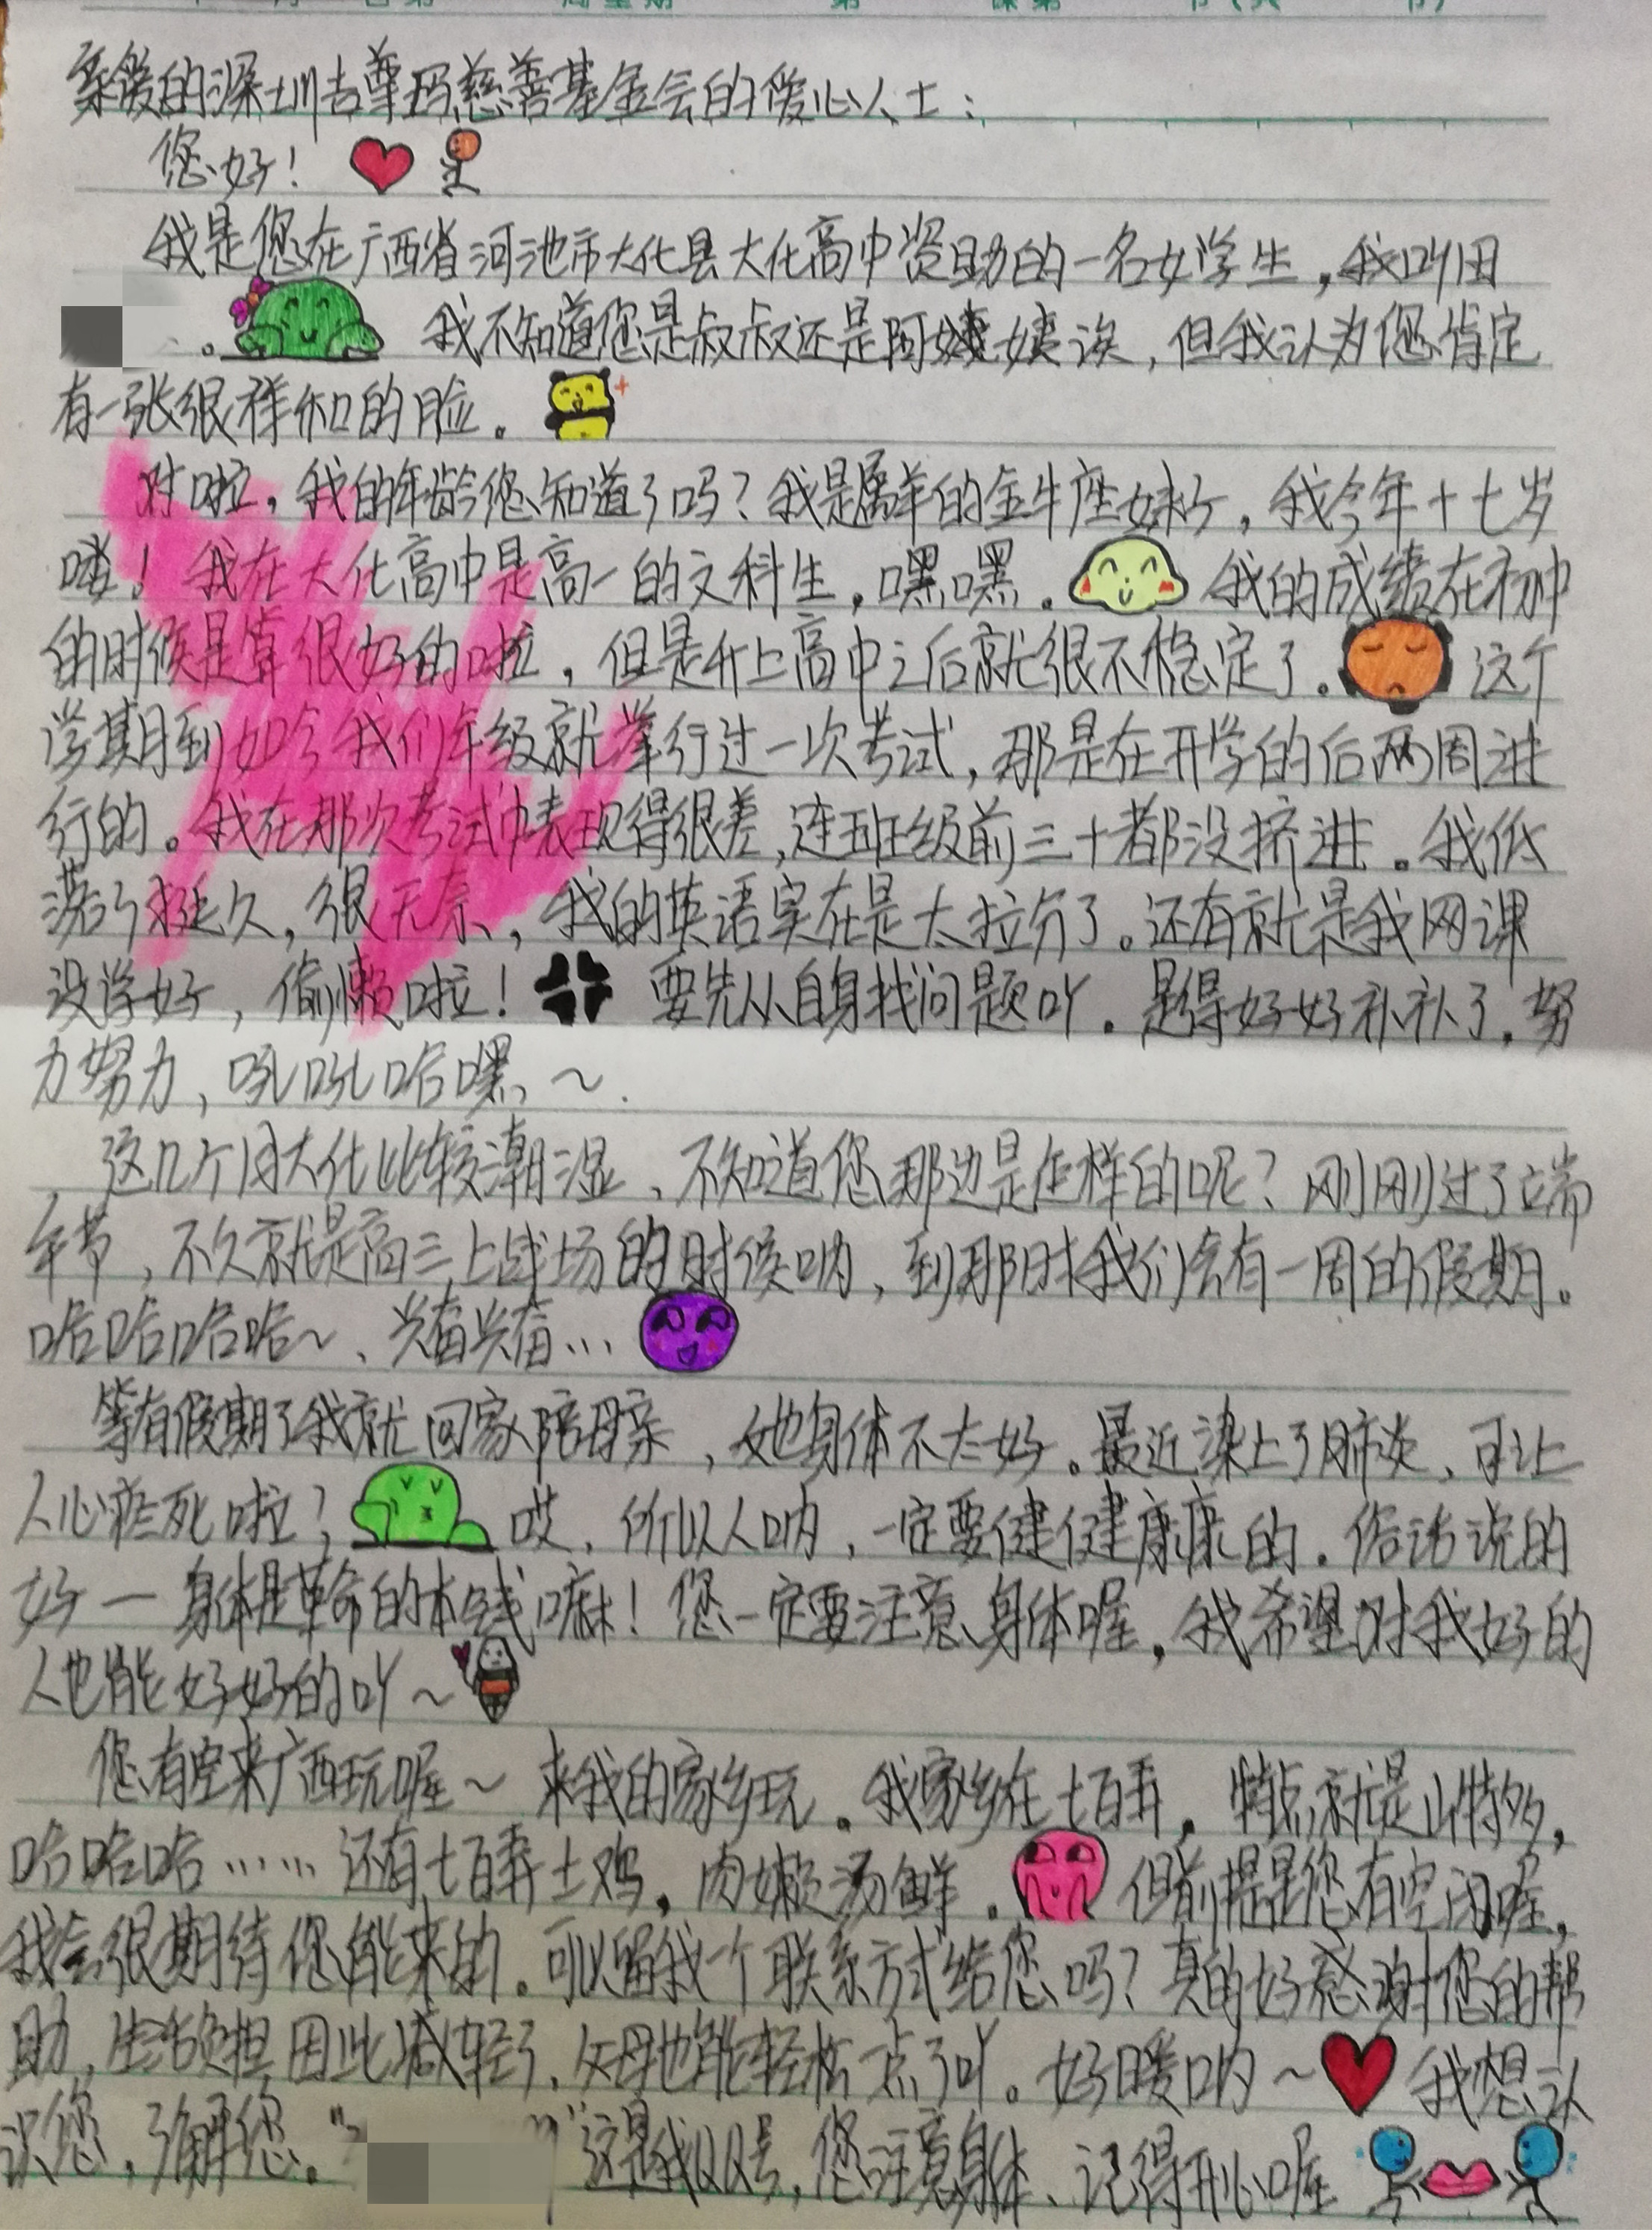 亲爱的深圳吉尊玛慈善基金会的爱心人士：
您好！
我是您在广西省河池市大化县大化高中资助的一名女学生，我叫田
。我不知道您是叔叔还是阿姨姨诶，但我认为您肯定
有一张很祥和的脸。
对啦，我的年龄您知道了吗？我是属羊的金牛座妹子，我今年十七岁
喽！我在大化高中是高一的文科生，嘿嘿。我的成绩在初中
的时候是算很好的啦，但是升上高中之后就很不稳定了。这个
学期到如今我们年级就举行过一次考试，那是在开学的后两周进
行的。我在那次考试中表现得很差，连班级前三十都没挤进。我低
落了挺久，很无奈，我的英语实在是太拉分了。还有就是我网课
没学好，偷懒啦！要先从自身找问题吖。是得好好补补了，努
力努力，吼吼哈嘿、～.
这几个月大化比较潮湿、不知道您那边是怎样的呢？刚刚过了端
午节，不久就是高三上战场的时侯呐，到那时我们会有一周的假期。
哈哈哈哈～、兴奋兴奋…
等有假期了我就回家陪母亲，她身体不太好。最近染上了肺炎、可让
人心疼死啦！哎，所以人呐，一定要健健康康的。俗话说的
好一身体是革命的本钱嘛！您一定要注意身体喔，我希望对我好的
人也能好好的吖～
您有空来广西玩喔～来我的家乡玩。我家乡在七百弄。特点就是山特多，
哈哈哈……还有七百弄土鸡，肉嫩汤鲜。但前提是您有空闲喔，
我会很期待您能来的。可以留我一个联系方式给您吗？真的好感谢您的帮
助，生活负担因此减轻了，父母也能轻松一点了吖。好暖呐～我想认
识您，了解您。“ ”这是我QQ号，您注意身体、记得开心喔